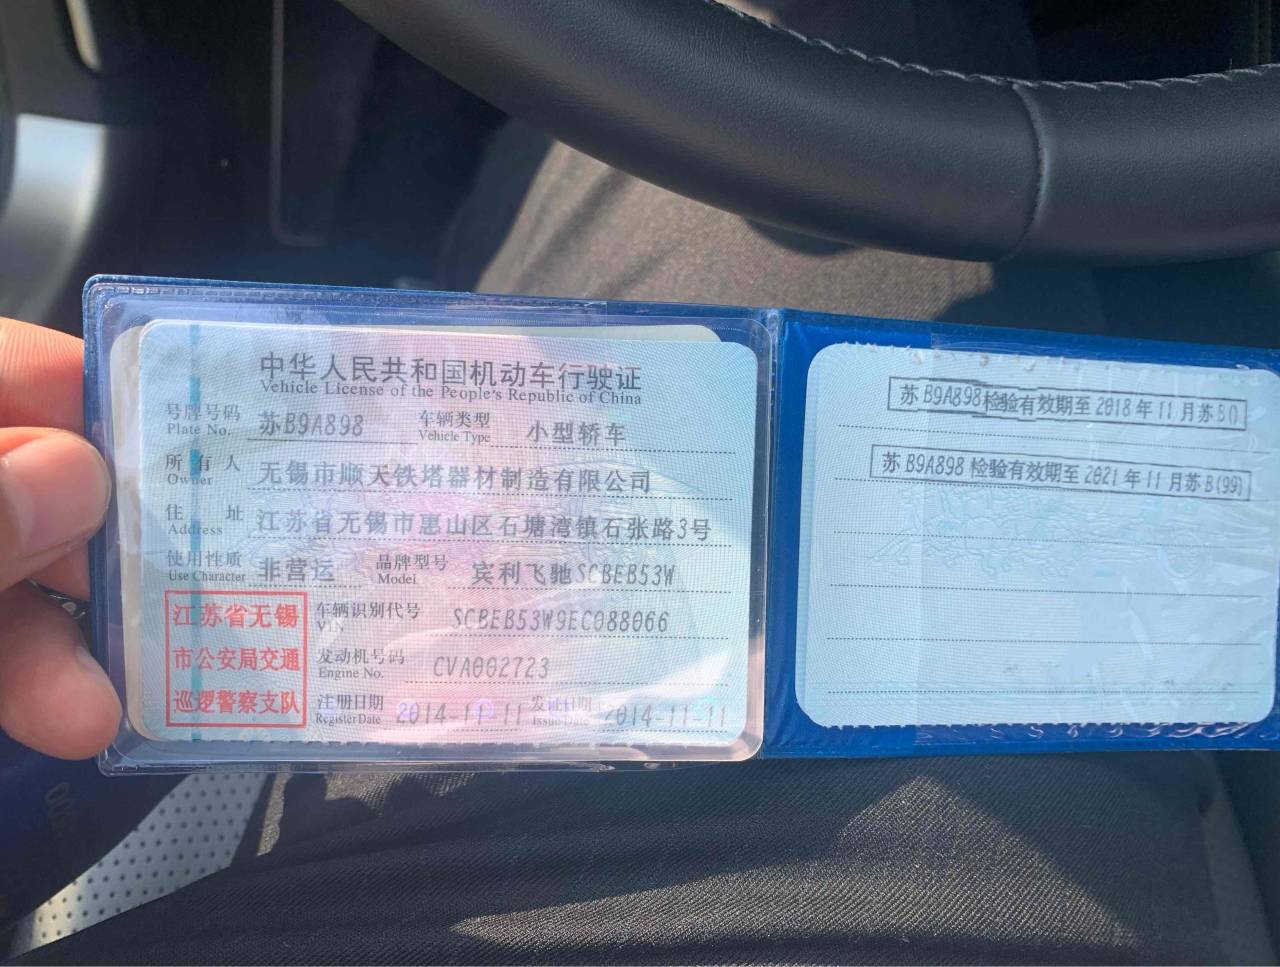 中华人民共和国机动车行驶证
Vehicle License of the People's Republic of China
号牌号码 苏B9A898 车辆类型 小型轿车
Plate No. Vehicle Type
所有人 无锡市顺天铁塔器材制造有限公司
Owner
住址 江苏省无锡市惠山区石塘湾镇石张路3号
Address
使用性质 非营运 品牌型号 宾利飞驰SCBEB53W
Use Character Model
江苏省无锡
市公安局交通
巡逻警察支队
车辆识别代号 SCBEB53W9EC088066
VIN
发动机号码 CVA002723
Engine No.
注册日期 2014-11-11 发证日期 2014-11-11
Register Date Issue Date
苏B9A898检验有效期至2018年11月苏B0
苏B9A898检验有效期至2021年11月苏B(99)